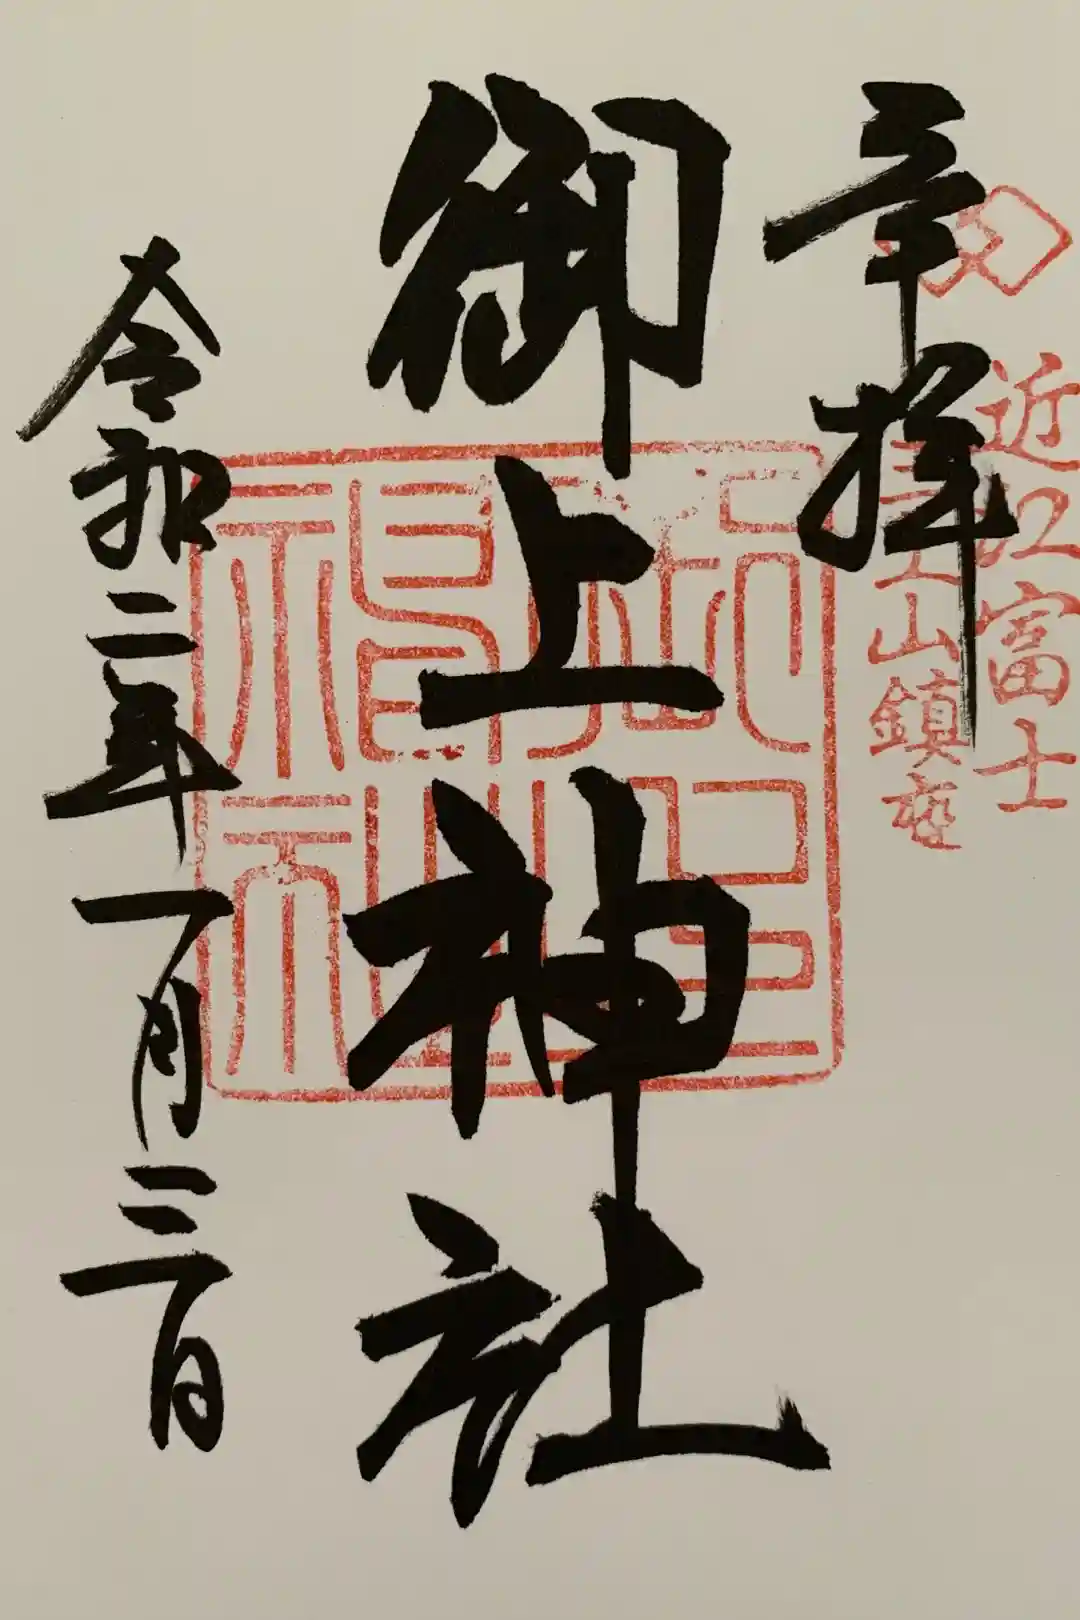 近江富士
三上山鎮座
奉拝
御上神社
令和二年一月三日